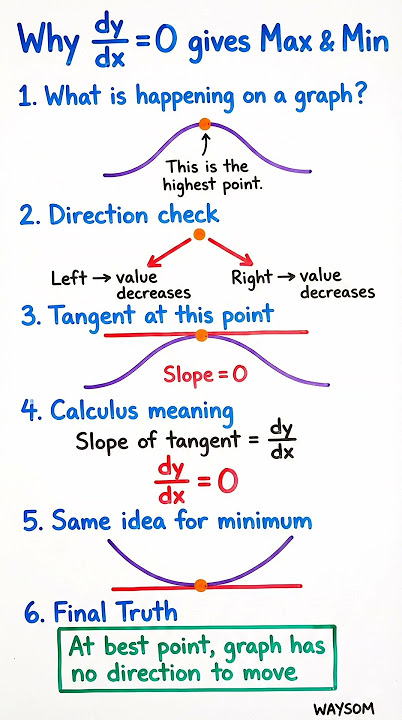 Why dy/dx = 0 gives Max & Min
1. What is happening on a graph?
This is the
highest point.
2. Direction check
Left → value
decreases
Right → value
decreases
3. Tangent at this point
Slope = 0
4. Calculus meaning
Slope of tangent = dy/dx
dy/dx = 0
5. Same idea for minimum
6. Final Truth
At best point, graph has
no direction to move
WAYSOM